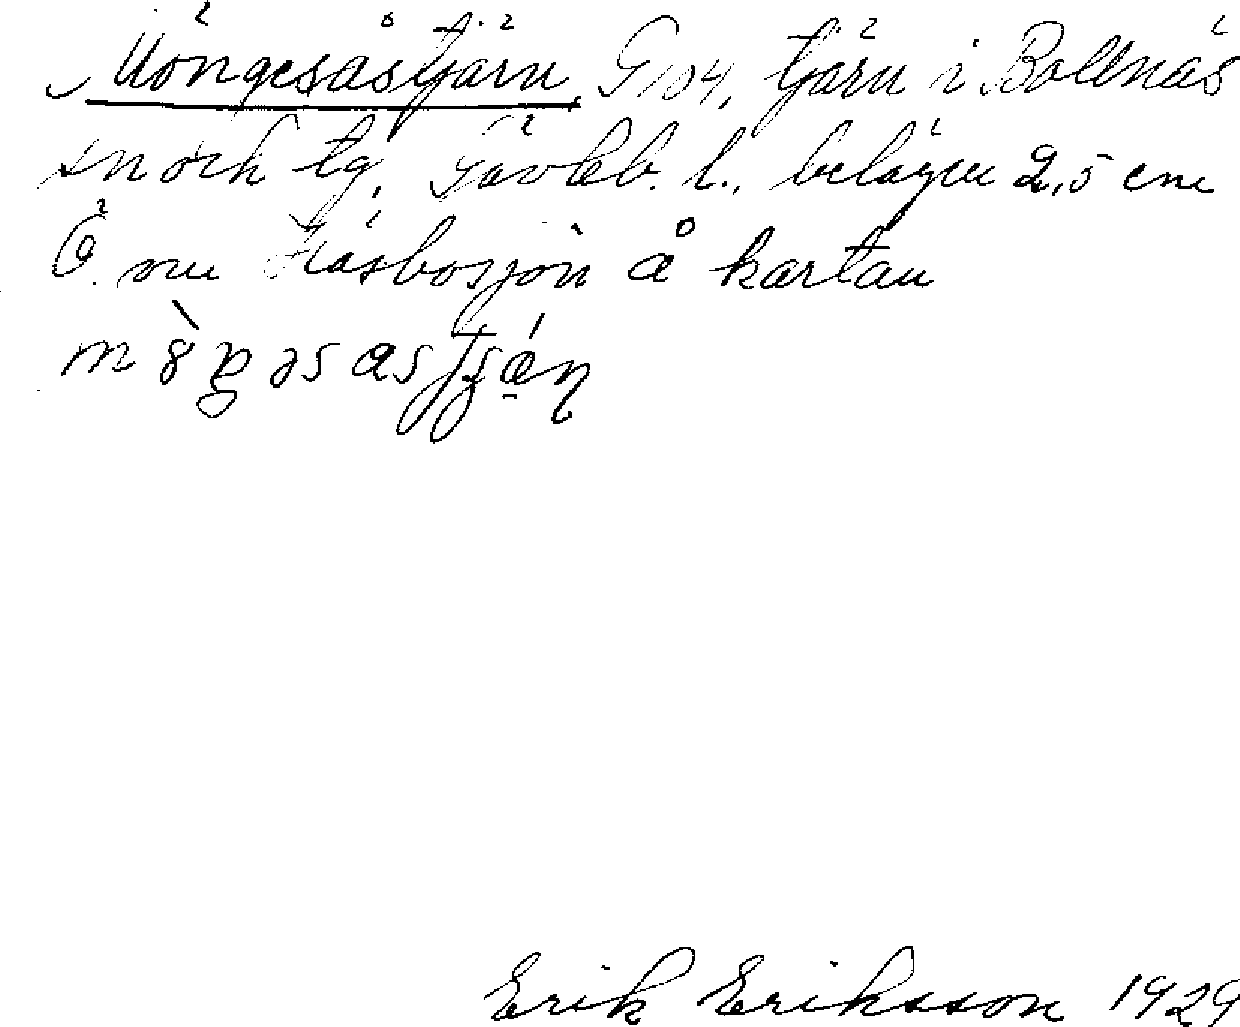 Möngesåstjärn, G 104, tjärn i Bollnäs
sn och tg, Gävleb. l., belägen 2,5 cm
Ö. om Häsbosjön å kartan
Erik Eriksson 1929